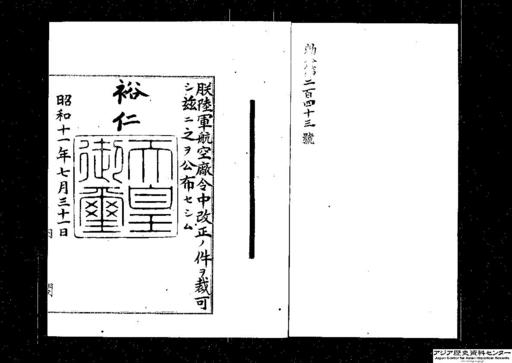 勅令第二百四十三號
朕陸軍航空廠令中改正ノ件ヲ裁可
シ茲ニ之ヲ公布セシム
裕仁
天皇
御璽
昭和十一年七月三十一日
アジア歴史資料センター
Japan Center for Asian Historical Records